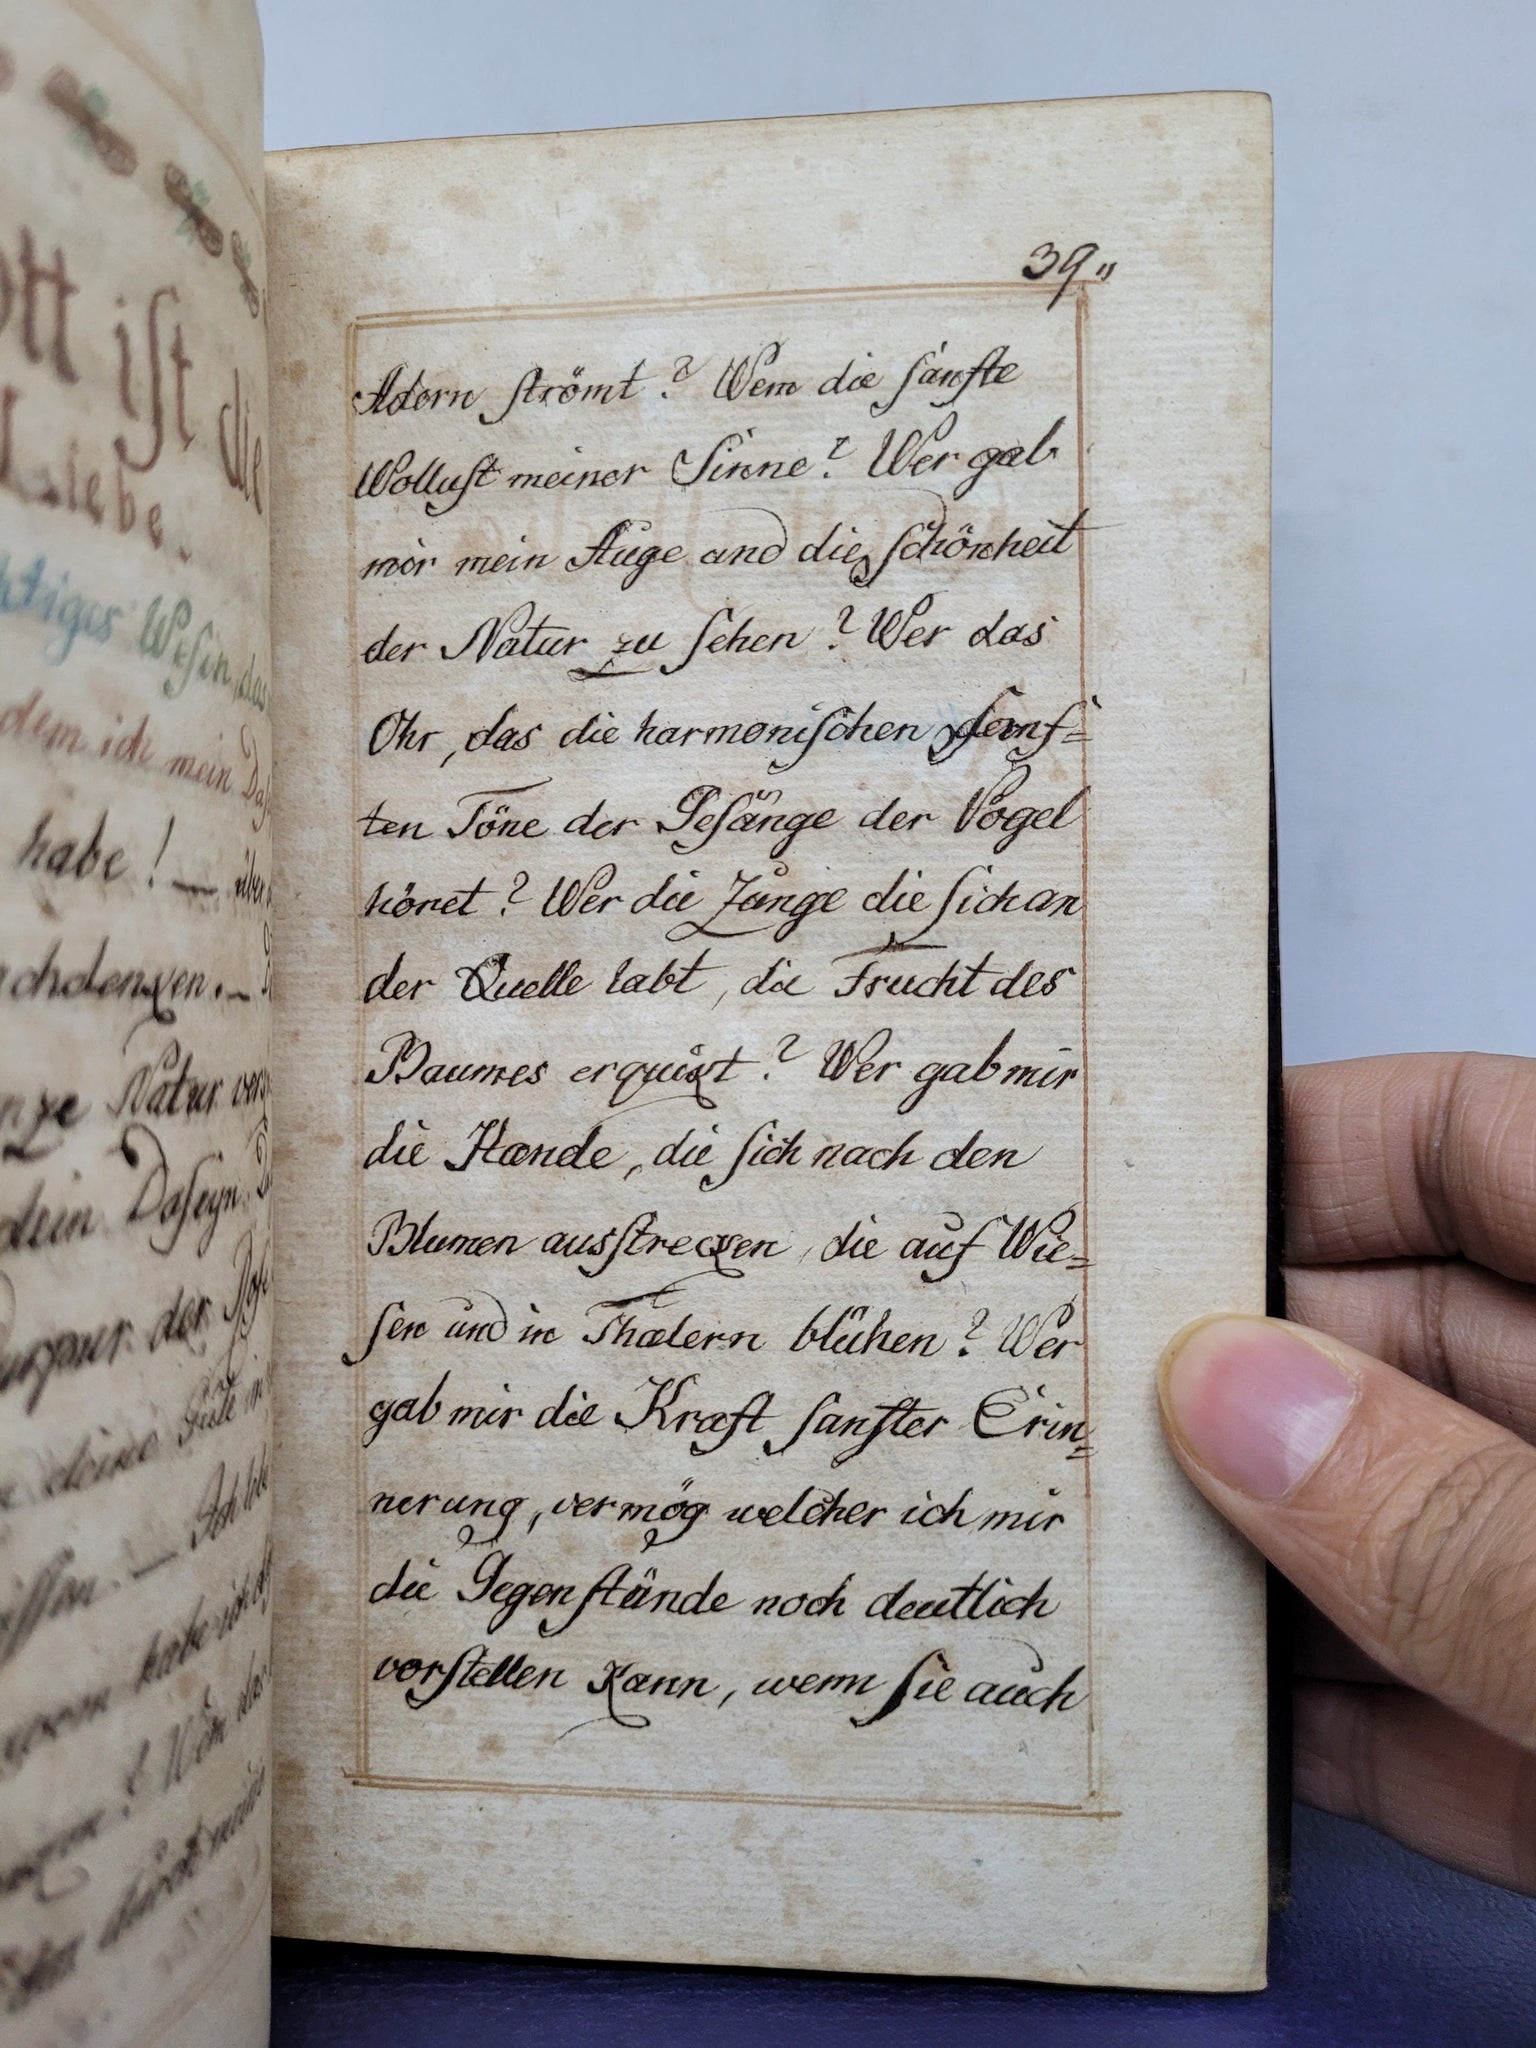 ott ist die
Liebe.
htiges Wesen, das
dem ich mein
habe ! —
achdenken. —
nze Natur
dein Daseyn.
Purpur der
deine Güte in
issen. — Ach
habe ich
39 "
Adern strömt ? Wem die sanfte
Wollust meiner Sinne ? Wer gab
mir mein Auge und die Schönheit
der Natur zu sehen ? Wer das
Ohr, das die harmonischen senf=
ten Töne der Gesänge der Vögel
höret ? Wer die Zunge die sich an
der Quelle labt, die Frucht des
Baumes erquikt ? Wer gab mir
die Hænde, die sich nach den
Blumen ausstrecken, die auf Wie=
sen und in Thælern blühen ? Wer
gab mir die Kraft sanfter Erin=
nerung, vermög welcher ich mir
die Gegenstände noch deutlich
vorstellen kann, wenn sie auch